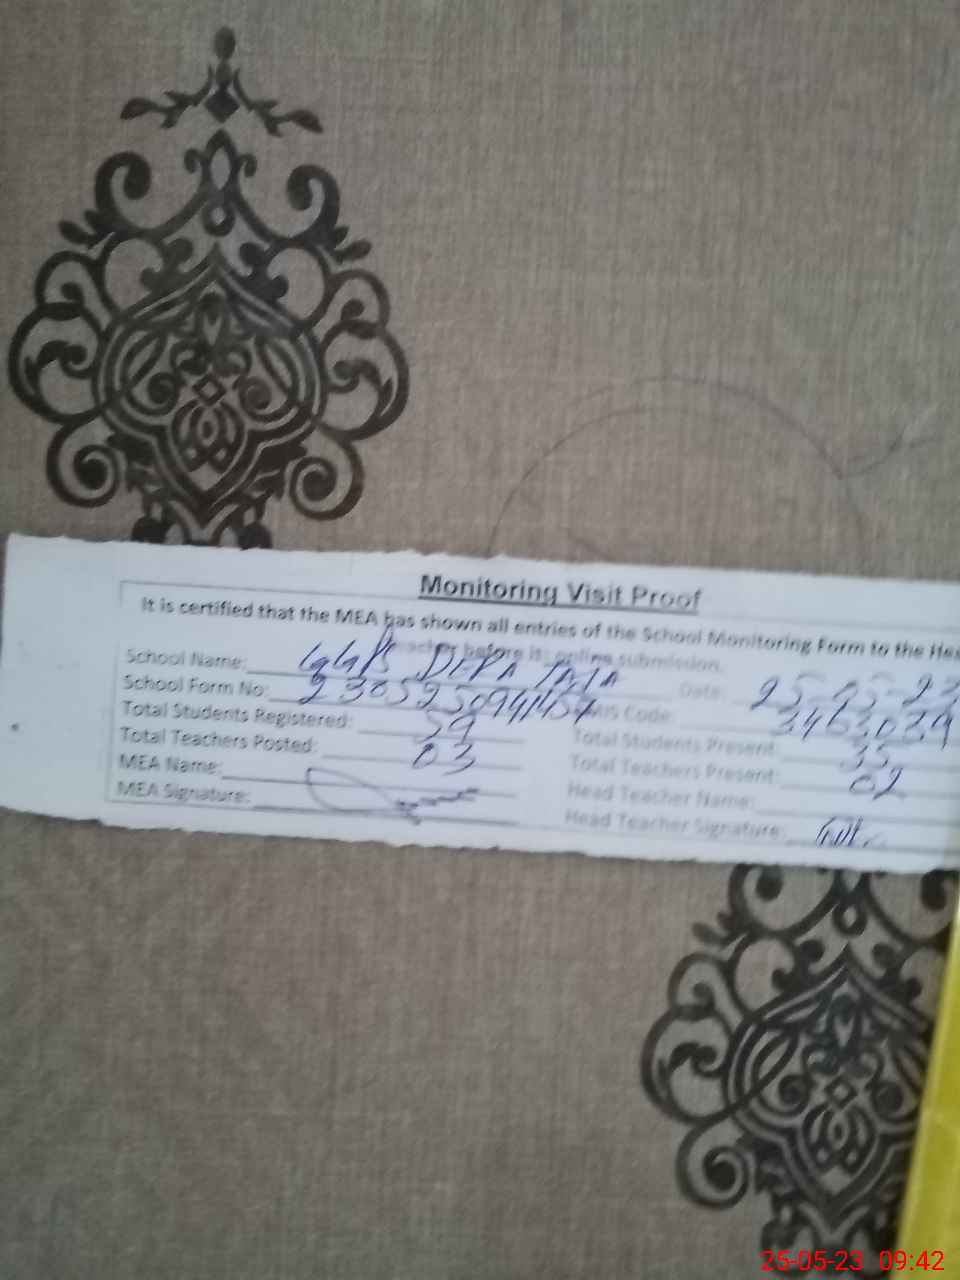 Monitoring Visit Proof
It is certified that the MEA has shown all entries of the School Monitoring Form to the Hea
before it online submission.
School Name: GGPS DERA Date: 25-05-23
School Form No: Code:
Total Students Registered: 59 Total Students Present: 35
Total Teachers Posted: 03 Total Teachers Present: 02
MEA Name: Head Teacher Name:
MEA Signature: Head Teacher Signature:
25-05-23 09:42